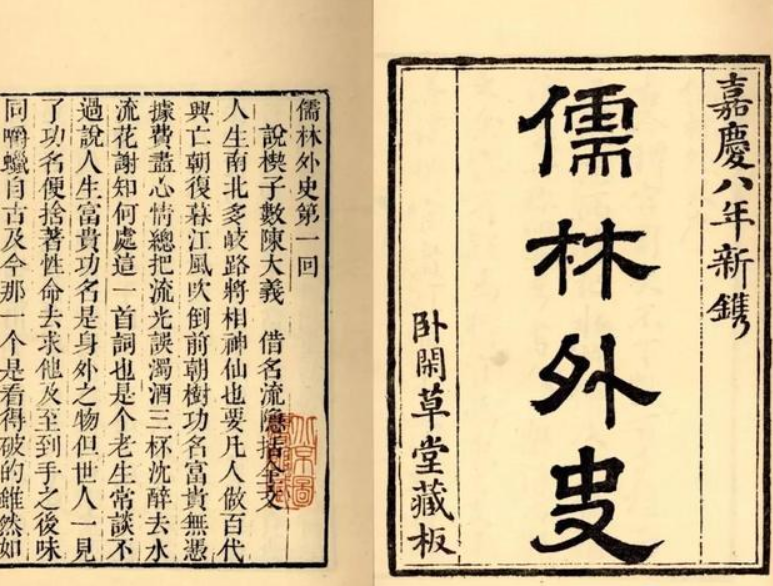 嘉慶八年新鐫
儒林外史
臥閑草堂藏板
儒林外史第一回
說楔子敷陳大義 借名流隱括全文
人生南北多岐路將相神仙也要凡人做百代
興亡朝復暮江風吹倒前朝樹功名富貴無憑
據費盡心情總把流光誤濁酒三杯沈醉去水
流花謝知何處這一首詞也是个老生常談不
過說人生富貴功名是身外之物但世人一見
了功名便捨著性命去求他及至到手之後味
同嚼蠟自古及今那一个是看得破的雖然如